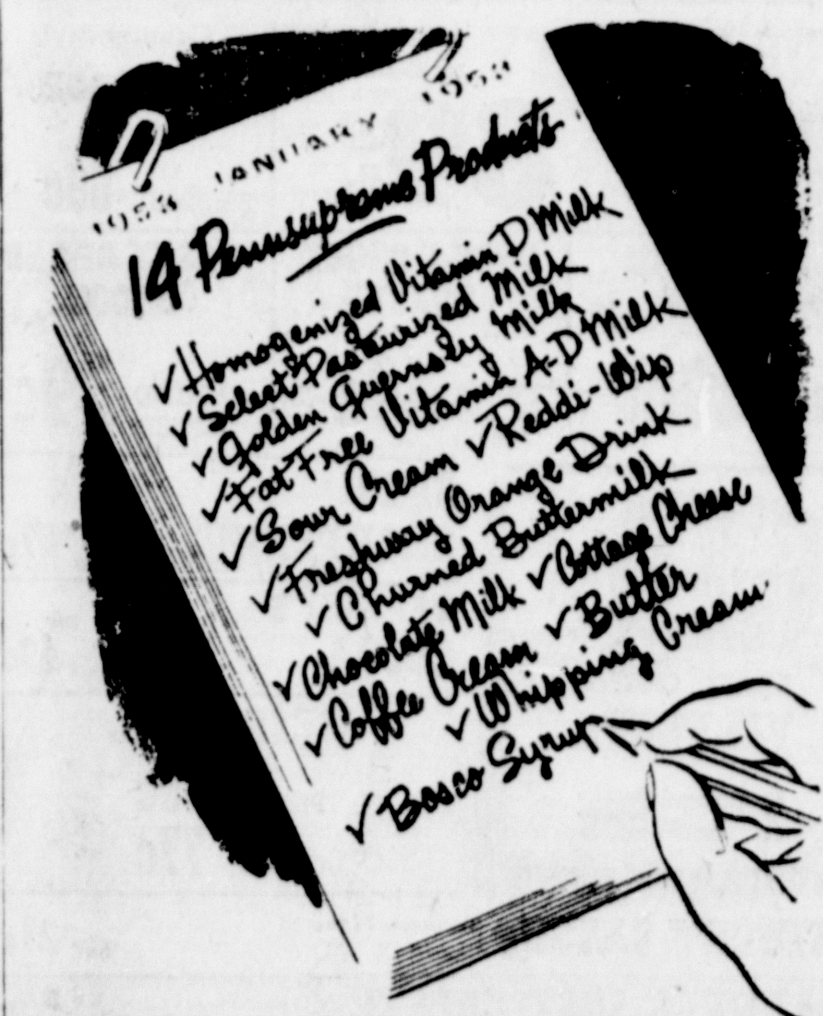 1953 JANUARY 1953
14 Pennsupreme Products
✓ Homogenized Vitamin D Milk
✓ Select Pasteurized Milk
✓ Golden Guernsey Milk
✓ Fat Free Vitamin A-D Milk
✓ Sour Cream ✓ Reddi-Wip
✓ Freshway Orange Drink
✓ Churned Buttermilk
✓ Chocolate Milk ✓ Cottage Cheese
✓ Coffee Cream ✓ Butter
✓ Whipping Cream
✓ Bosco Syrup